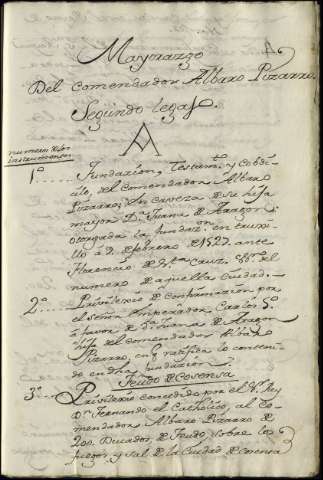 Mayorazgo
Del Comendador Albaro Pizarro.
Segundo legajo.
A
numeros de los
instrumentos
1º..... Fundacion, Testam.to y Cobdi-
cilo, del Comendador Albaro
Pizarro; en caveza de su hija
mayor D.ª Juana de Aragon;
otorgada la fundaz.on en truxi-
llo à 2 de febrero de 1527 ante
Florencio de S.ta Cruz ss.no del
numero de aquella Ciudad.
2º..... Privilegio de Confirmacion por
el señor Emperador Carlos 5º
à favor de D.ª Juana de Aragon
hija del comendador Albaro
Pizarro, en q. ratifica lo conteni-
do en dha fundacion
Feudo de Cosensa
3º..... Privilegio concedido por el S.r Rey
D.n Fernando el Catholico, al Co-
mendador Albaro Pizarro de
200. Ducados, de Feudo, sobre los
fuegos, y sal de la Ciudad de Cosensa